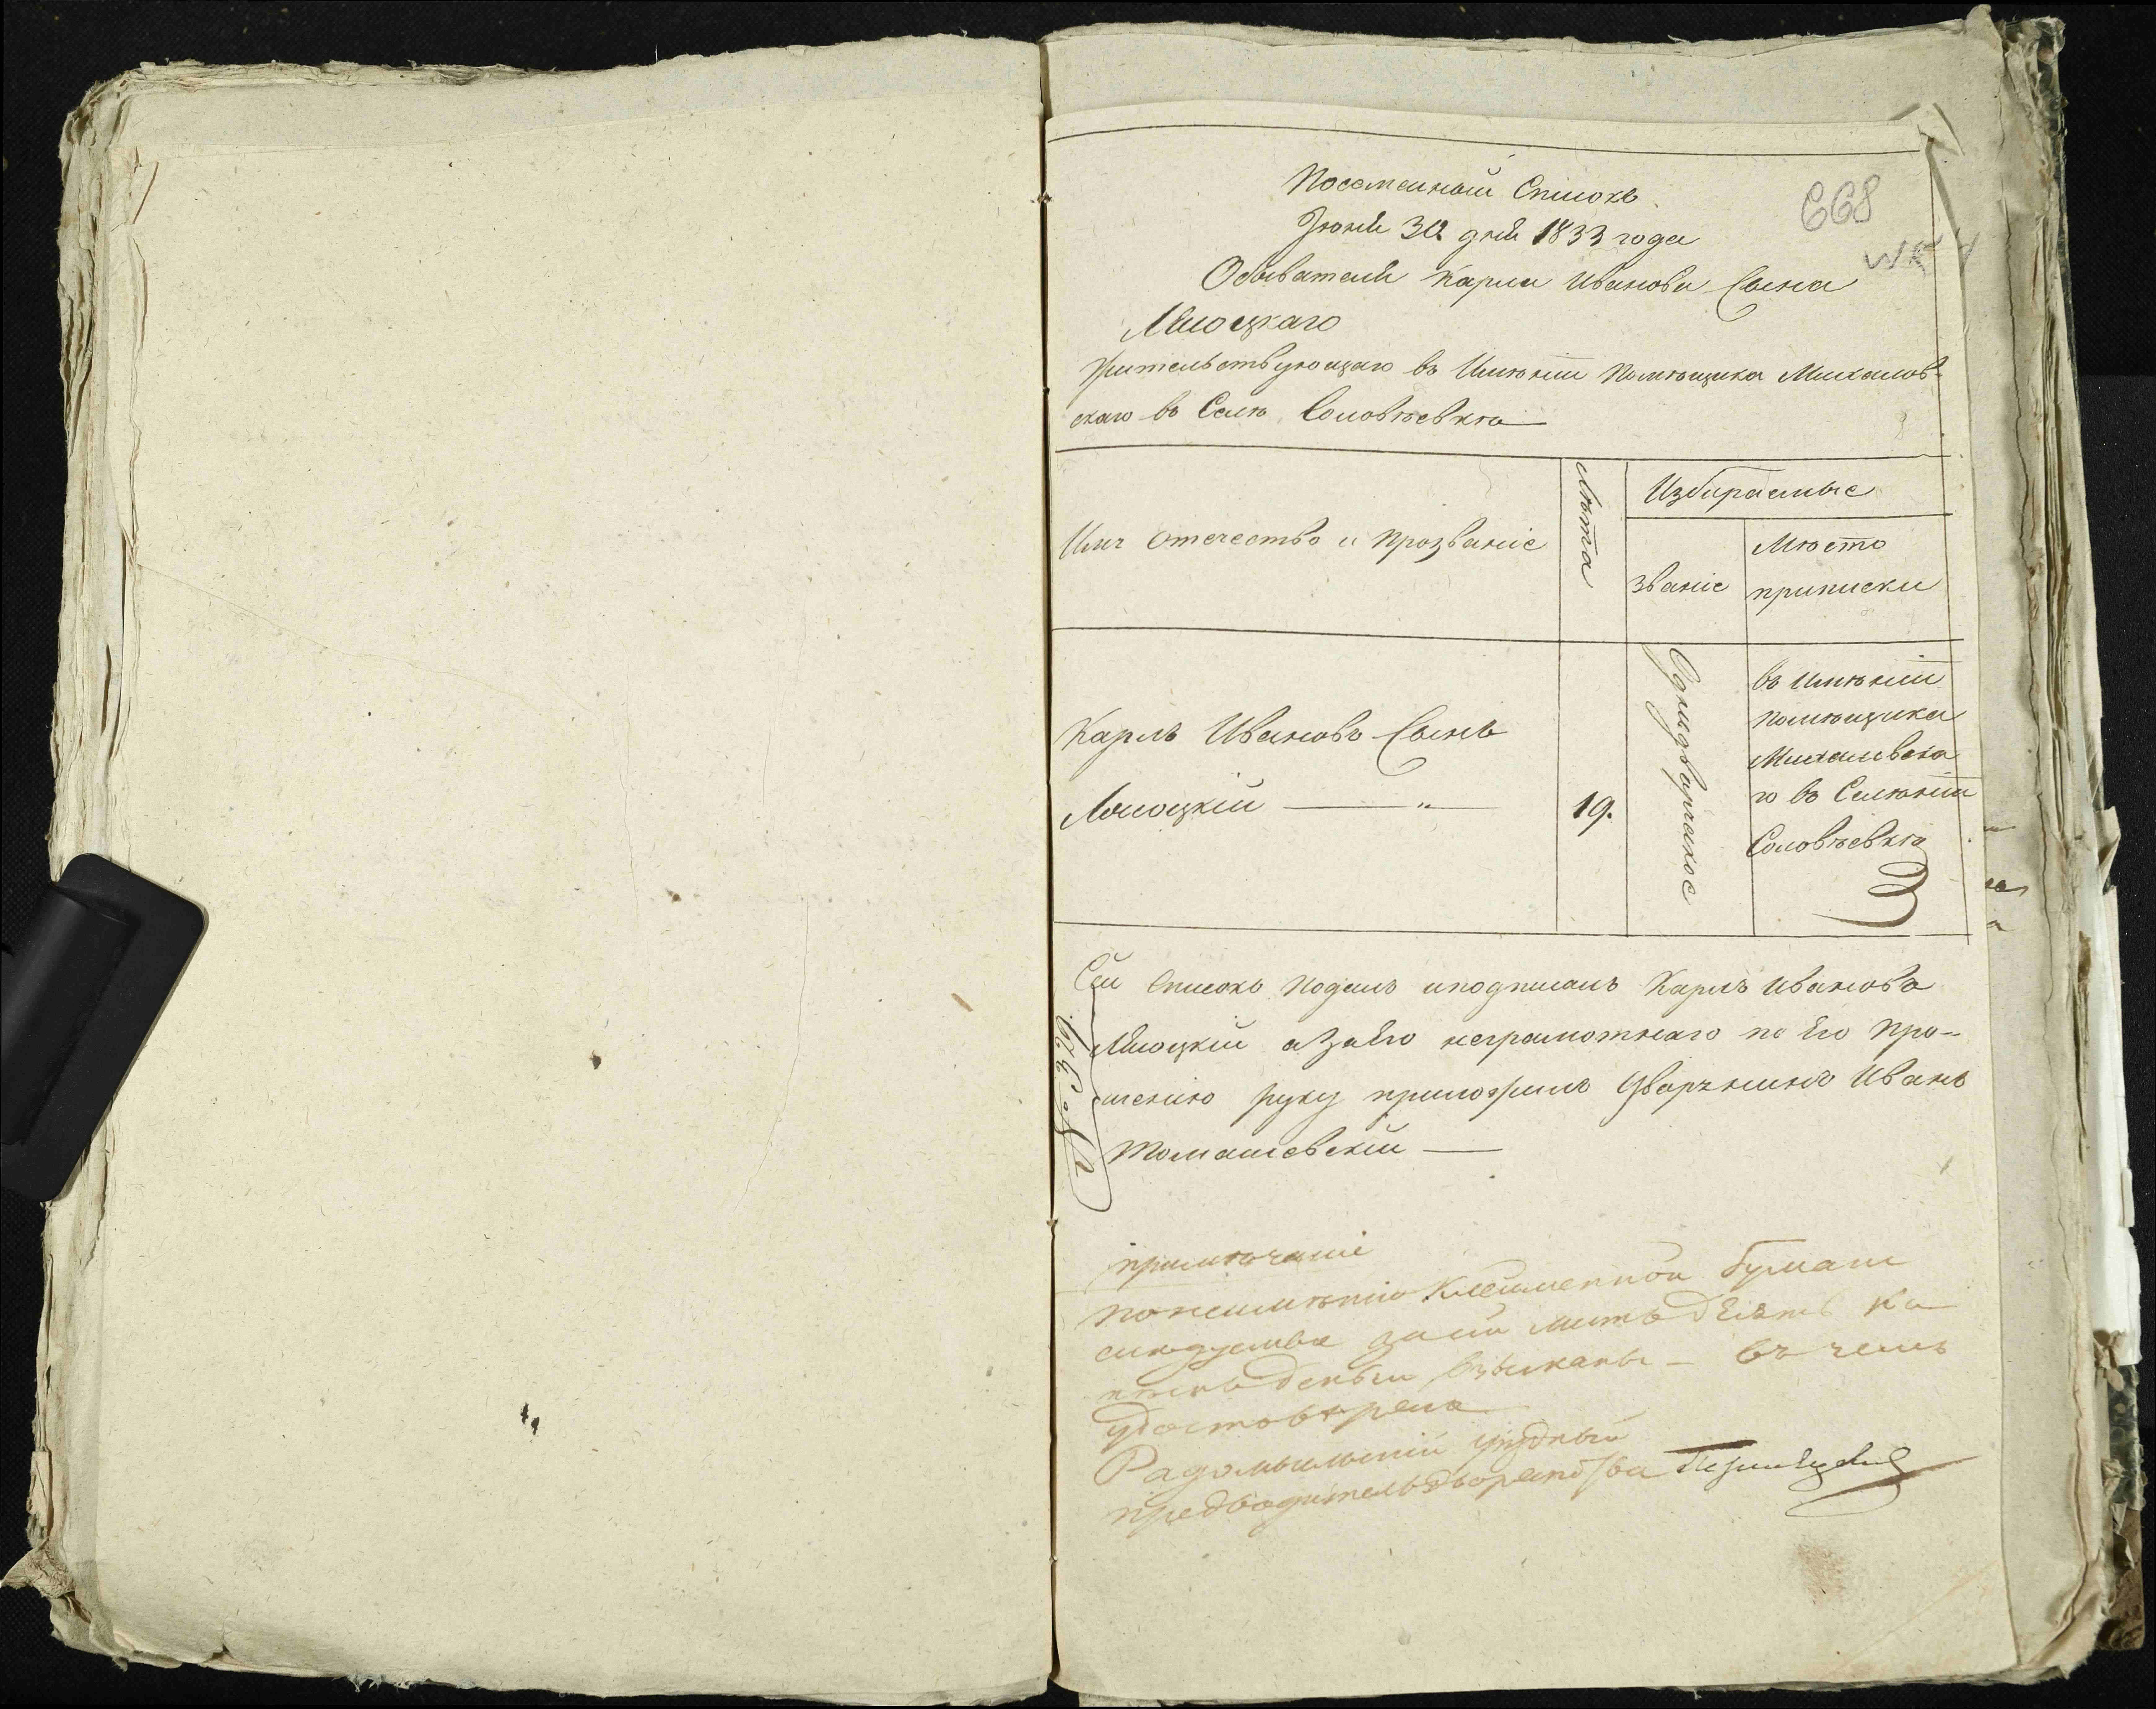 Посемейный Списокъ
668
Іюня 30 дня 1833 года
Обывателя Карла Иванова Сына
жительствующаго въ Имѣніи Помѣщика Михалов-
скаго въ Селѣ Соловѣевкѣ
Имя Отечество и прозваніе
Лѣта
Избираемые
званіе
Мѣсто
приписки
Карлъ Ивановъ Сынъ
19.
Однодворческое
въ имѣніи
помѣщика
Михаловска
го въ Селѣніи
Соловѣевкѣ
Сей Списокъ подалъ и подписалъ Карлъ Ивановъ
а За Его неграмотнаго по Его про-
шенію руку приложилъ Дворянинъ Иванъ
Томашевскій
примѣчаніе
по неимѣнію Клейменной бумаги
слѣдуемые за сей листъ десять Ко
пѣекъ денги взысканы — въ чемъ
удостовѣряю
Радомыльскій уѣздный
предводитель дворянства